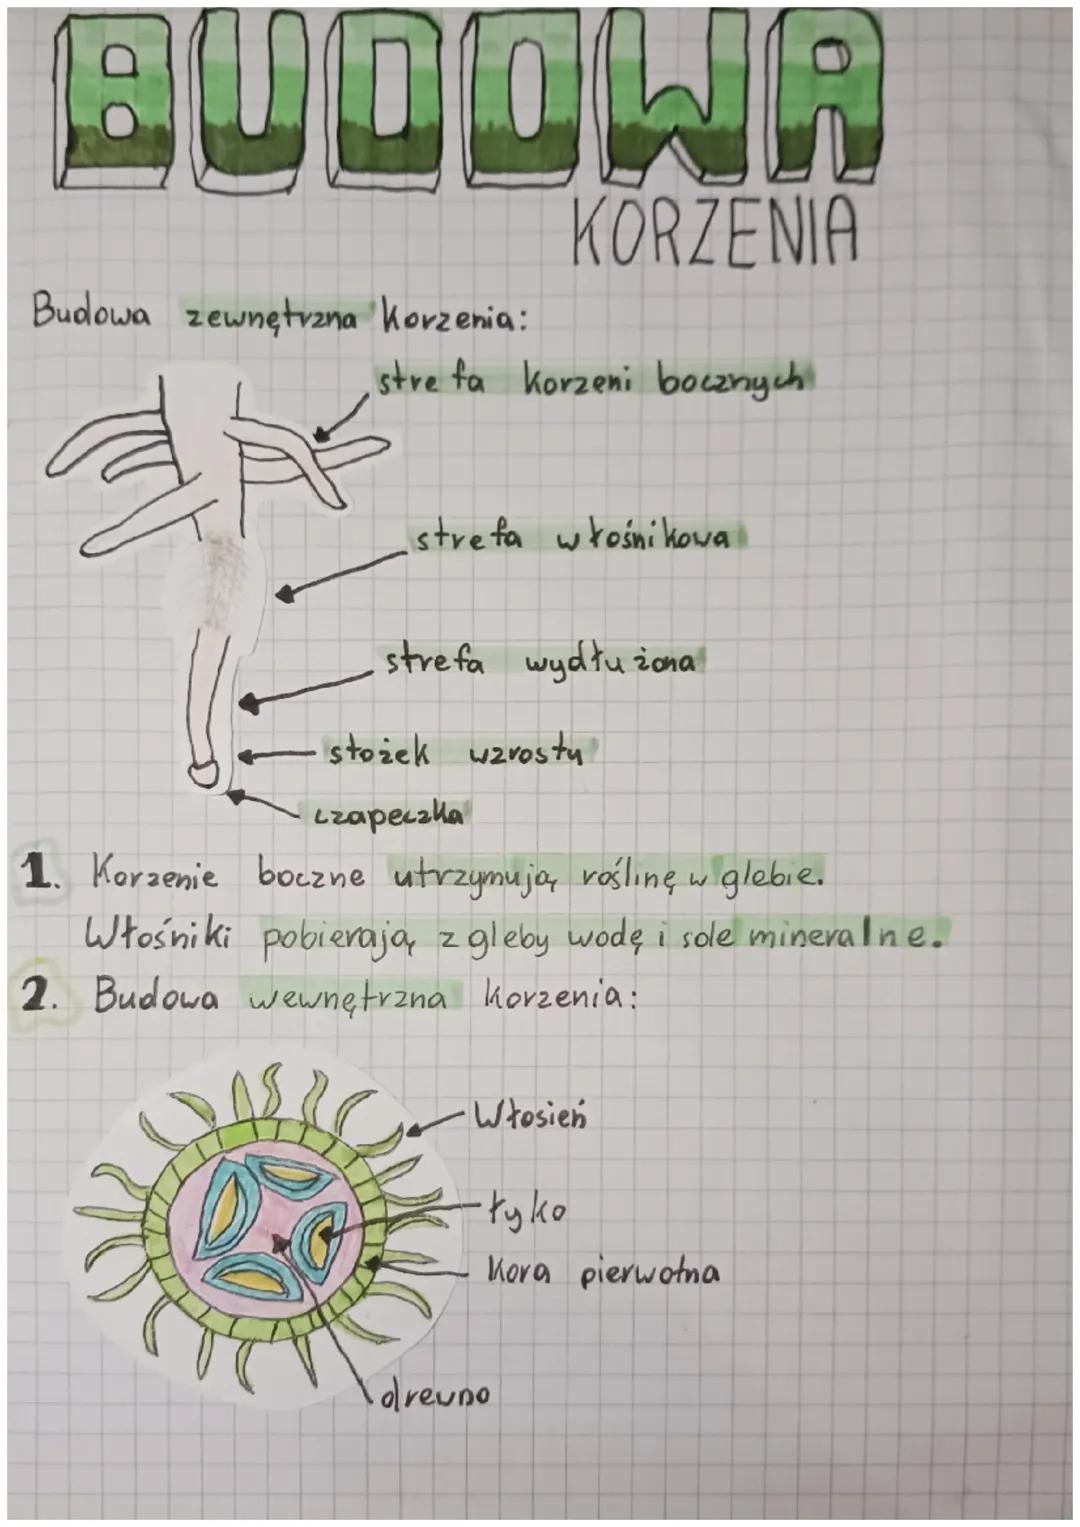 BUDOWA
KORZENIA
Budowa zewnętrzna korzenia:
strefa korzeni bocznych
strefa włośnikowa
strefa wydłużona
stożek wzrostu
czapeczka
1. Korzenie boczne utrzymują roślinę w glebie.
Włośniki pobierają z gleby wodę i sole mineralne.
2. Budowa wewnętrzna korzenia:
Włosień
łyko
kora pierwotna
drewno